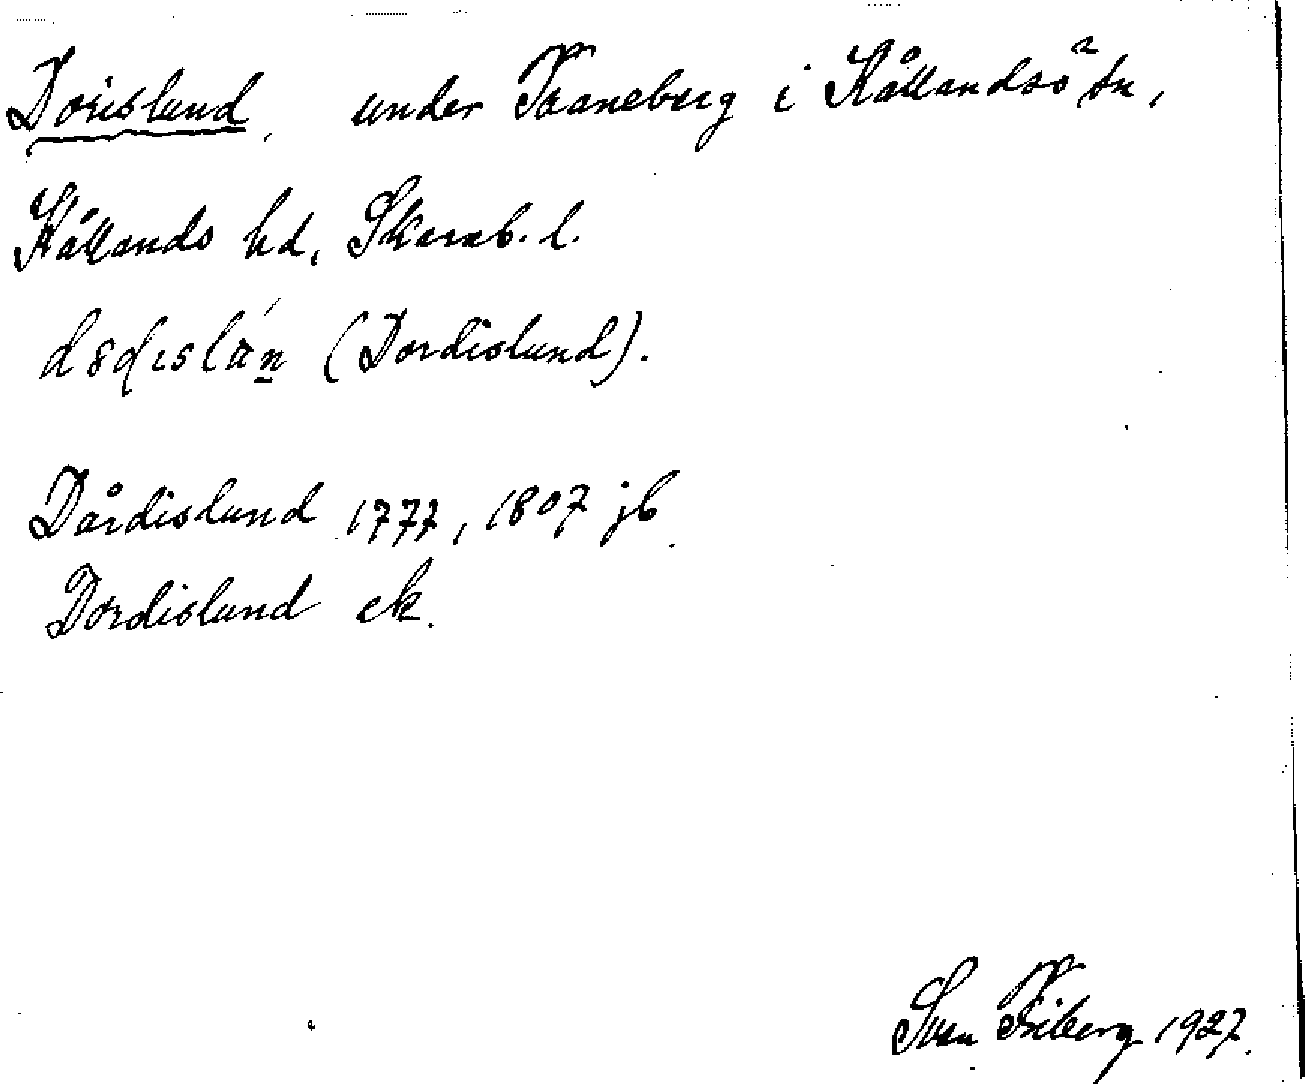 Dorislund, under Traneberg i Kållandsö sn,
Kållands hd, Skarab. l.
(Dordislund).
Dårdislund 1777, 1807 jb.
Dordislund ek.
Sven Friberg 1927.